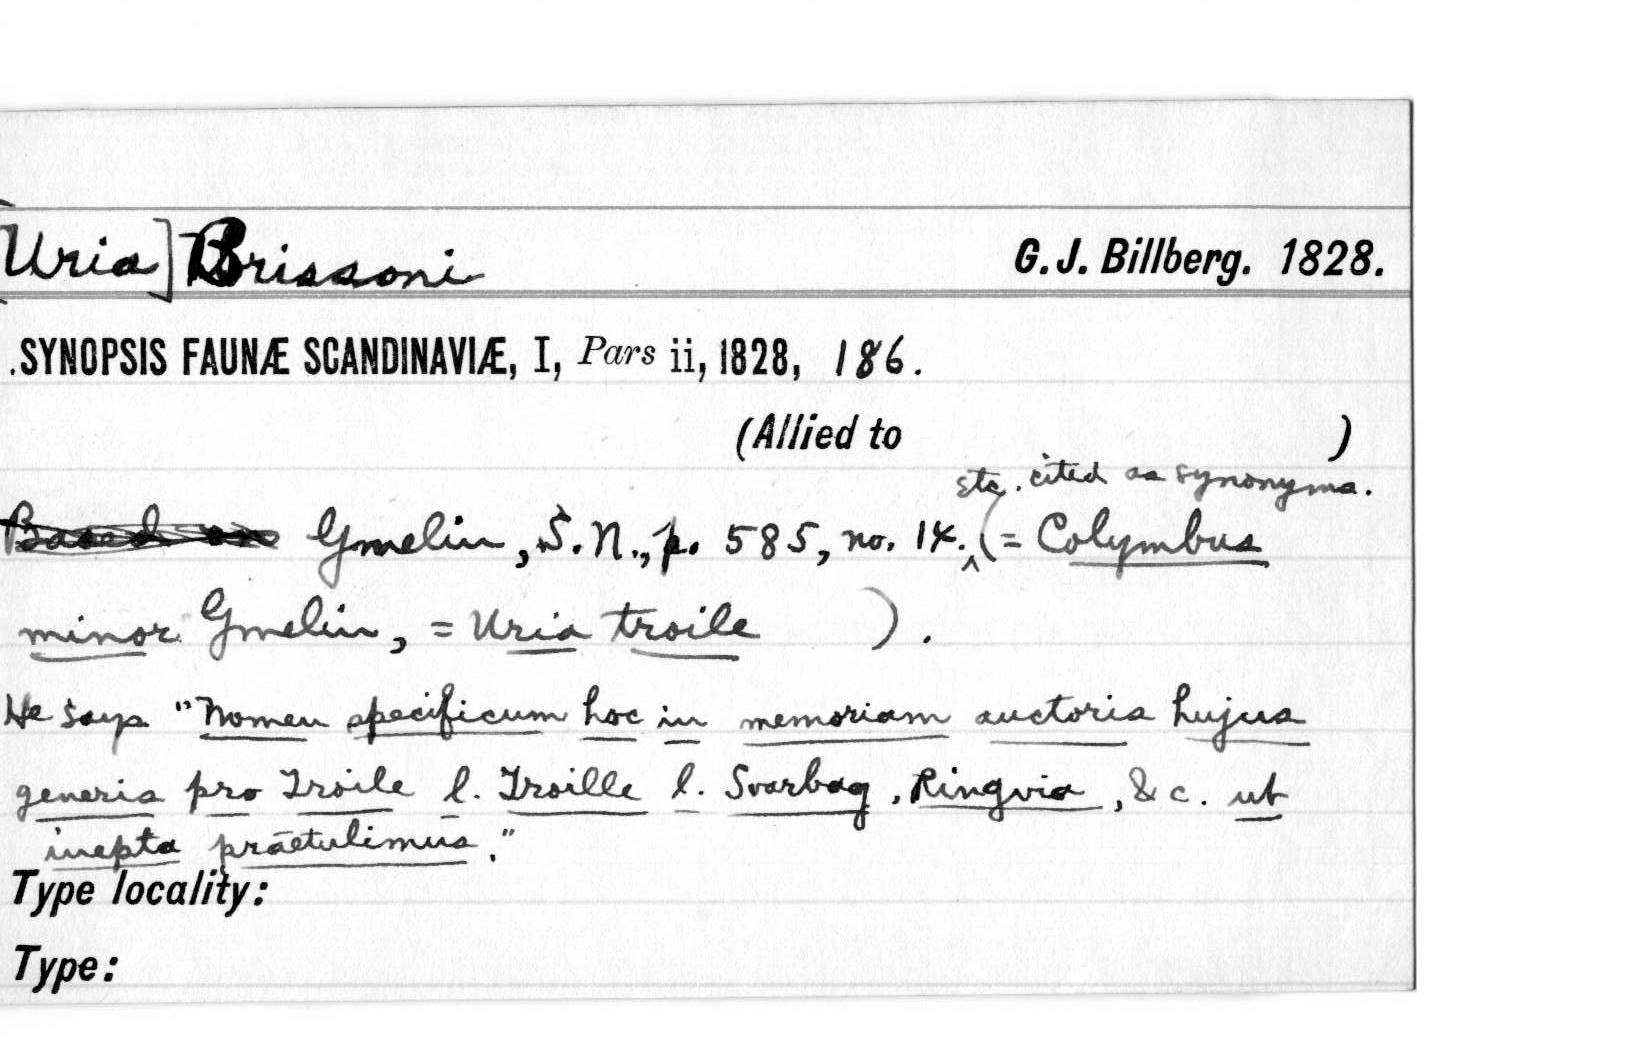 [Uria] Brissoni G. J. Billberg. 1828.
.SYNOPSIS FAUNÆ SCANDINAVIÆ, I, Pars ii, 1828, 186.
(Allied to )
etc. cited as synonyms.
Based on Gmelin, S.N., p. 585, no. 14. (= Colymbus
minor Gmelin, = Uria troile ).
He says "Nomen specificum hoc in memoriam auctoris hujus
generis pro Troile l. Troille l. Svarbag, Ringvia, &c. ut
inepta prætulimus."
Type locality:
Type: